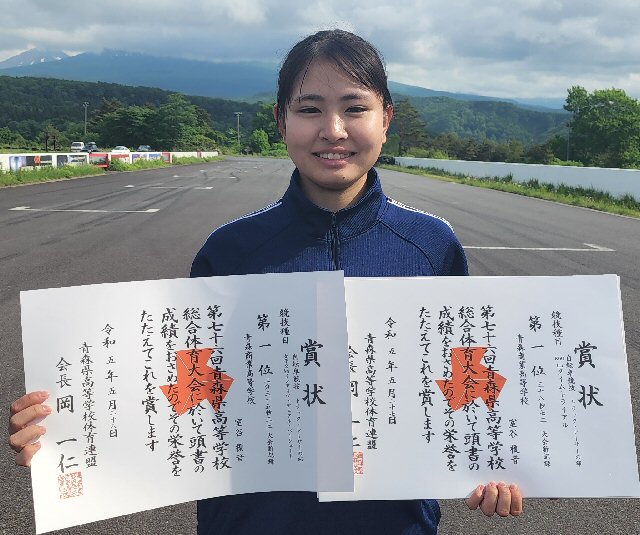 賞状
競技種目
第一位
青森商業高等学校
第七十六回青森県高等学校
総合体育大会に於いて頭書の
成績をおさめたのでその栄誉を
たたえてこれを賞します
令和五年五月
青森県高等学校体育連盟
会長 岡 一仁
賞状
競技種目
自転車競技
タイムトライアル
第一位
大会新記録
青森商業高等学校
第七十六回青森県高等学校
総合体育大会に於いて頭書の
成績をおさめたのでその栄誉を
たたえてこれを賞します
令和五年五月
青森県高等学校体育連盟
会長